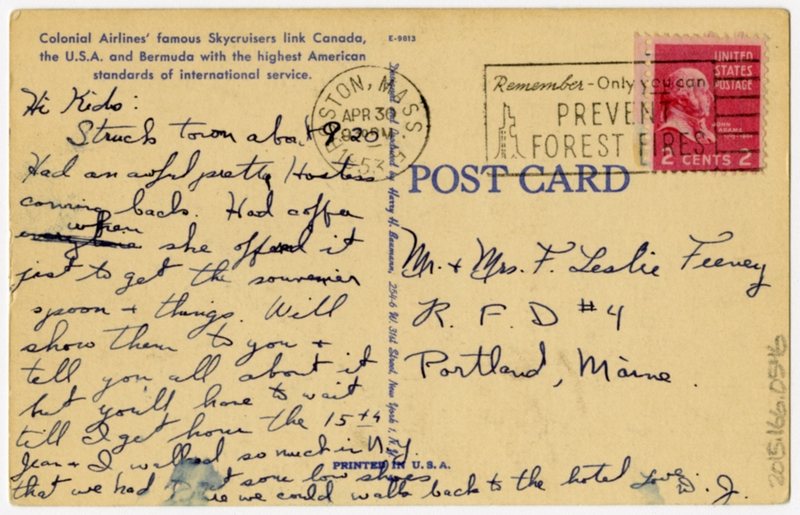 Colonial Airlines' famous Skycruisers link Canada,
the U.S.A. and Bermuda with the highest American
standards of international service.
E-9813
Hi Kids:
Struck town about 9 20
Had an awful pretty Hostess
coming back. Had coffee
when
she offered it
just to get the souvenier
spoon + things. Will
show them to you +
tell you all about it
but you'll have to wait
till I get home the 15th
Jean + I walked so much in N.Y.
that we had to get some low shoes
so we could walk back to the hotel Love
D. J.
BOSTON, MASS.
APR 30
PM
1953
Remember - Only you can
PREVENT
FOREST FIRES
UNITED
STATES
POSTAGE
JOHN
ADAMS
2 CENTS 2
POST CARD
Mr. + Mrs. F. Leslie Feeney
R. F. D #4
Portland, Maine.
by Harry H. Baumann, 254-6 W. 31st Street, New York 1, N.Y.
PRINTED IN U.S.A.
2015.166.0546